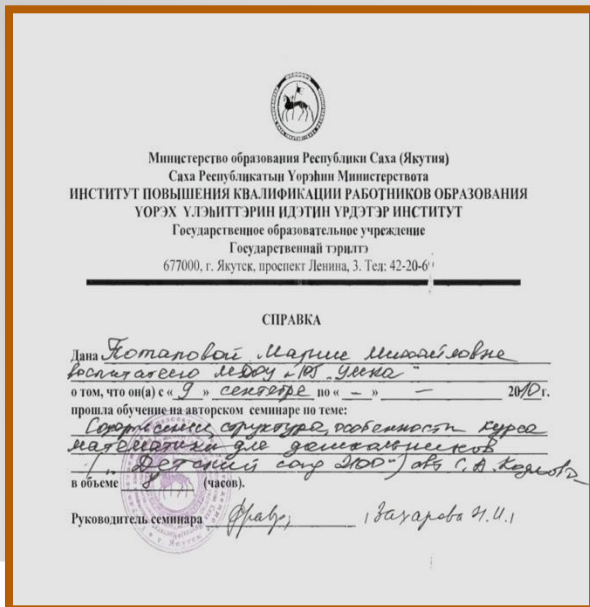 Министерство образования Республики Саха (Якутия)
Саха Республикатын Үөрэһин Министерствота
ИНСТИТУТ ПОВЫШЕНИЯ КВАЛИФИКАЦИИ РАБОТНИКОВ ОБРАЗОВАНИЯ
ҮОРЭХ ҮЛЭҺИТТЭРИН ИДЭТИН ҮРДЭТЭР ИНСТИТУТ
Государственное образовательное учреждение
Государственнай тэрилтэ
677000, г. Якутск, проспект Ленина, 3. Тел: 42-20-6
СПРАВКА
Дана Потаповой Марии Михайловне
воспитателю МДОУ №105 "Умка"
о том, что он(а) с « 9 » сентября по « – » – 2010 г.
прошла обучение на авторском семинаре по теме:
структура, особенности курса
математики для дошкольников
("Детский сад 2100") авт С.А. Козлова
в объеме 8 (часов).
Руководитель семинара Захарова Н.И.